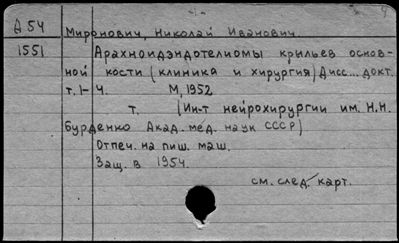 Д 54 Миронович, Николай Иванович
1551 Арахноидэндотелиомы крыльев основ-
ной кости (клиника и хирургия) Дисс... докт.
т. 1- 4. М, 1952
т. (Ин-т нейрохирургии им. Н.Н.
Бурденко Акад. мед. наук СССР)
Отпеч. на пиш. маш.
Защ. в 1954.
см. след. карт.